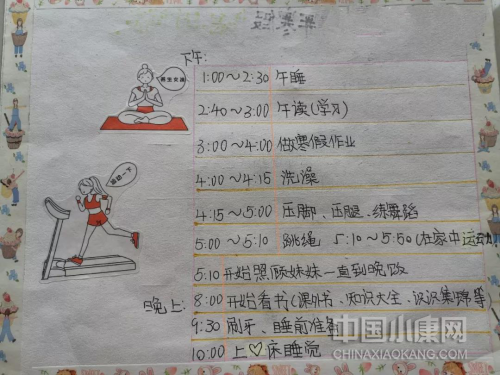 下午:
1:00～2:30 午睡
2:40～3:00 午读(学习)
3:00～4:00 做寒假作业
4:00～4:15 洗澡
4:15～5:00 压脚、压腿、练舞蹈
5:00～5:10 跳绳 5:10～5:50(在家中运动)
5:10开始照顾妹妹一直到晚饭
晚上:
8:00开始看书(课外书、知识大全、识识集锦等
9:30 刷牙、睡前准备
10:00 上♡床睡觉
中国小康网
CHINAXIAOKANG.COM